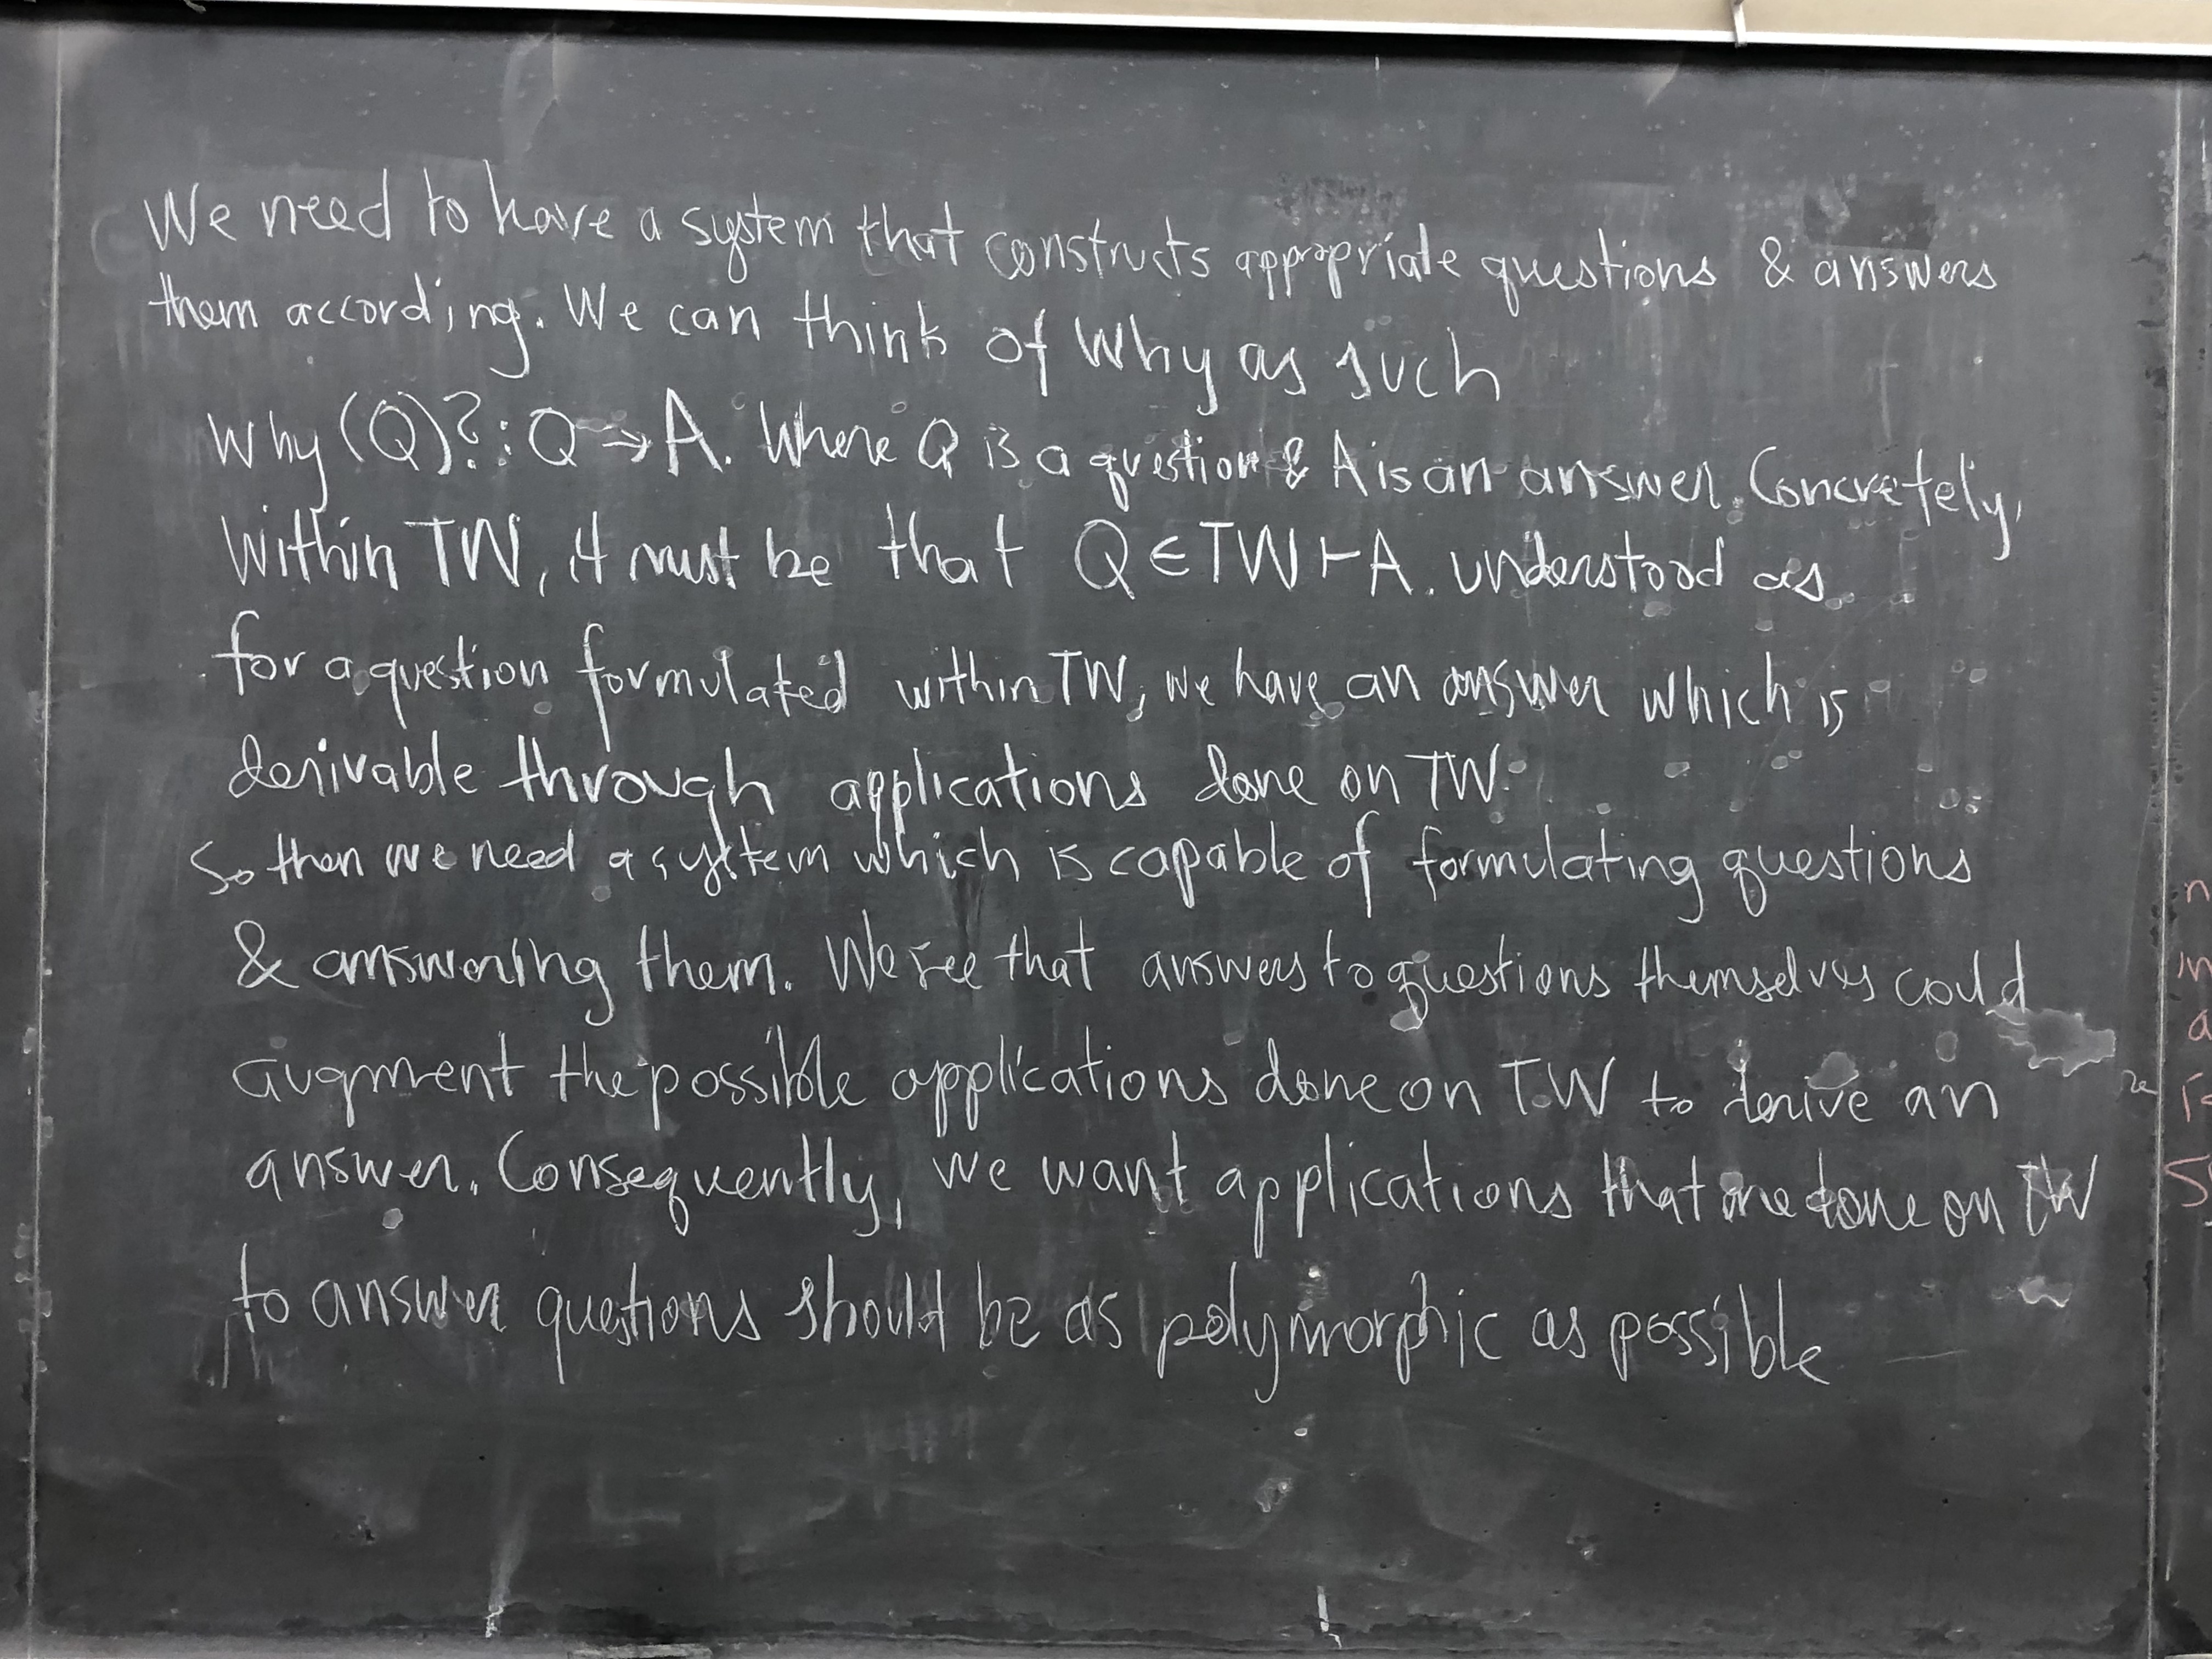 We need to have a system that constructs appropriate questions & answers
them according. We can think of Why as such
Why (Q)?: Q → A. Where Q is a question & A is an answer. Concretely,
Within TW, it must be that Q ∈ TW ⊢ A. understood as
for a question formulated within TW, we have an answer which is
derivable through applications done on TW.
So then we need a system which is capable of formulating questions
& answering them. We see that answers to questions themselves could
augment the possible applications done on TW to derive an
answer. Consequently, we want applications that are done on TW
to answer questions should be as polymorphic as possible
n
in
a
S